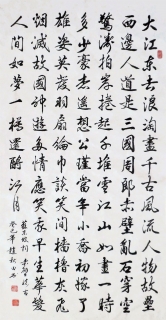 大江東去浪淘盡千古風流人物故壘
西邊人道是三國周郎赤壁亂石穿空
驚濤拍岸捲起千堆雪江山如畫一時
多少豪杰遙想公瑾當年小喬初嫁了
雄姿英發羽扇綸巾談笑間檣櫓灰飛
煙滅故國神遊多情應笑我早生華髮
人間如夢一樽還酹江月
蘇東坡詞赤壁懷古
癸巳年